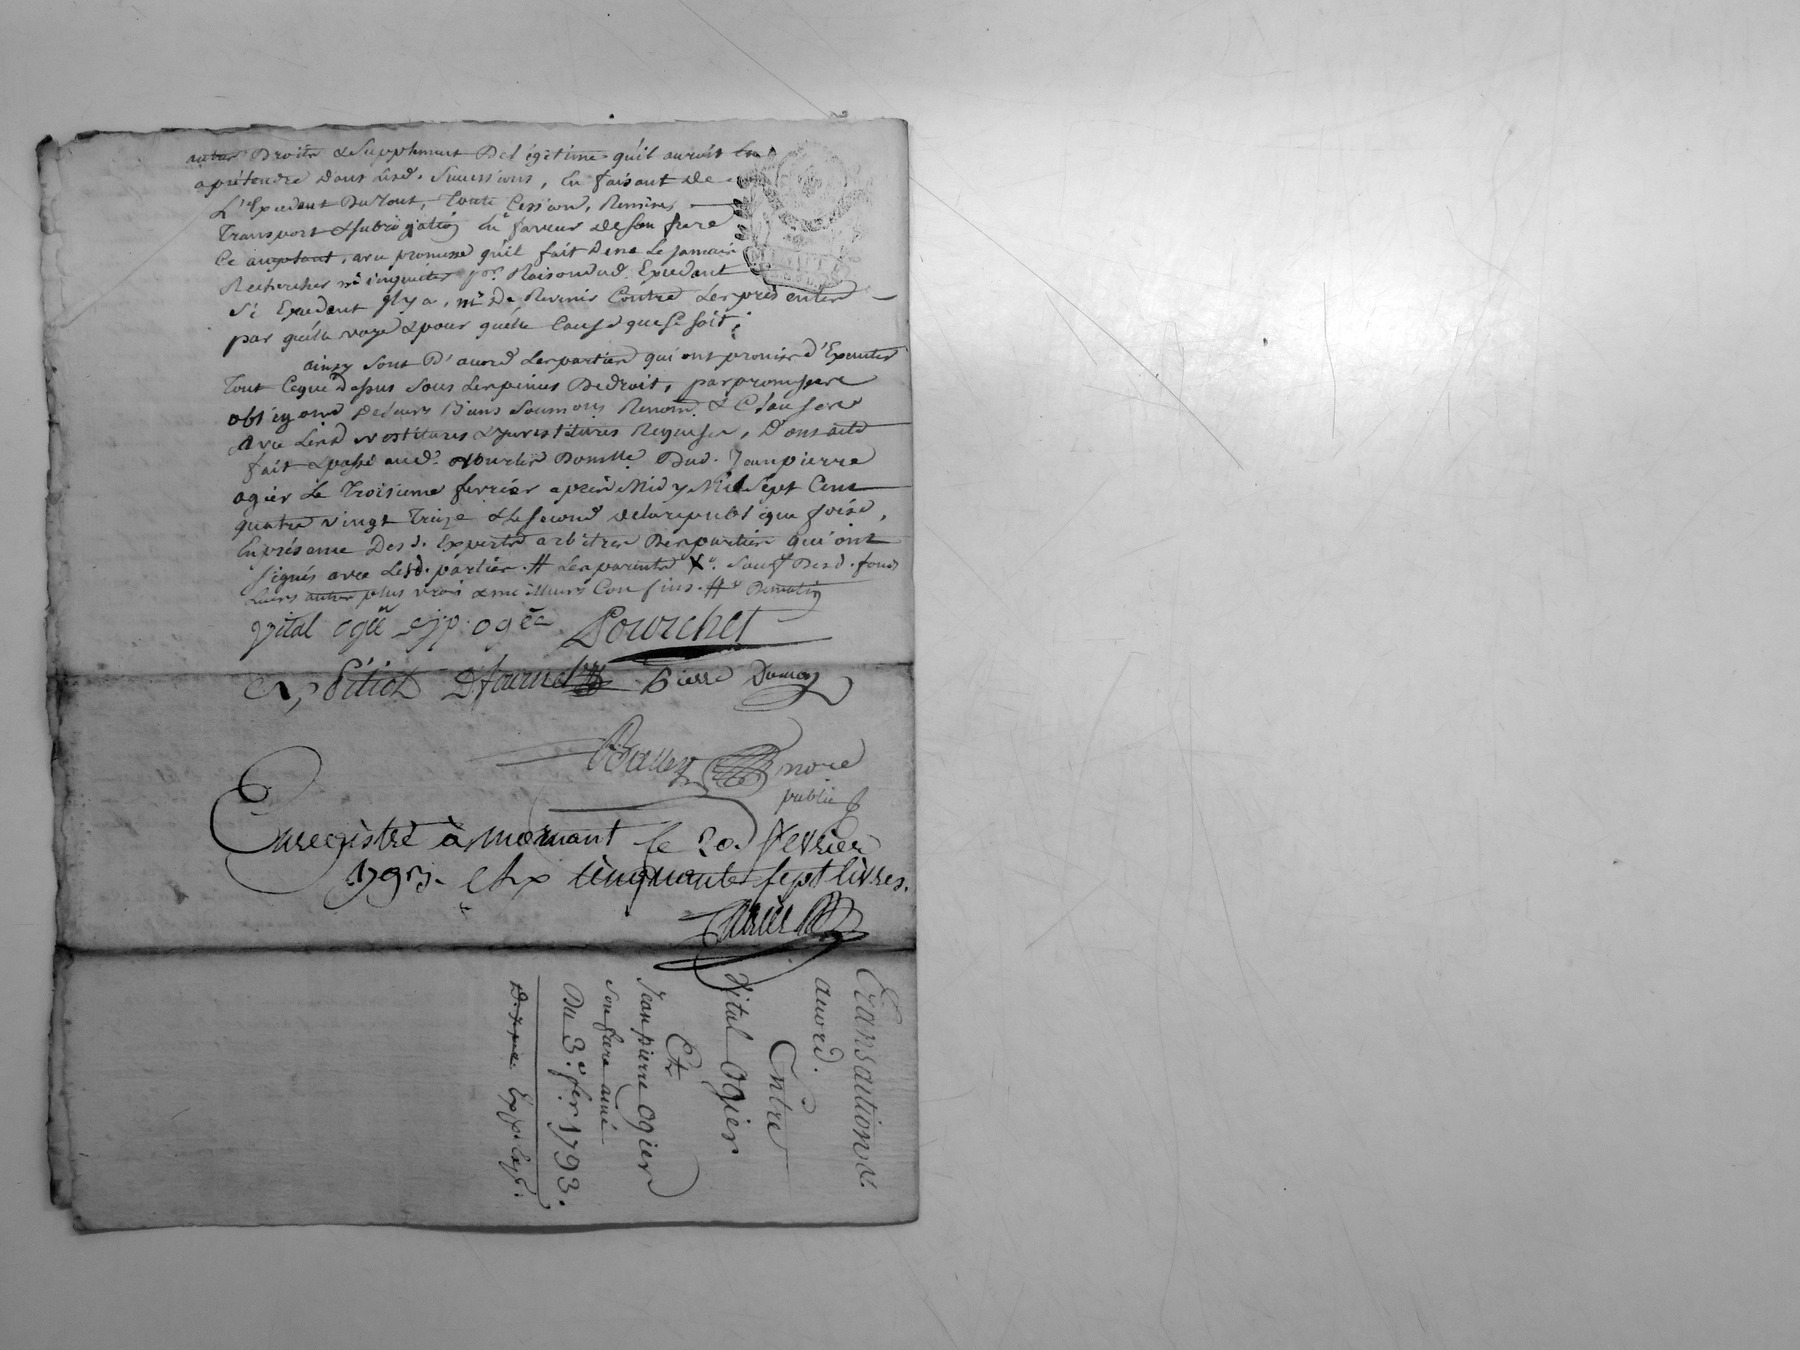 autres Droits & Supplement De Légitime qu'il auroit
a prétendre dans lesd. Successions, En faisant de
L'Excedant Du Tout, Toute Cession, Remise,
Transport & subrogation En faveur de son frere
Ce acceptant, avec promesse qu'il fait de ne le jamais
Rechercher ni inquieter pr. Raison dud. Excedant
Si Excedant Il y a, ni De Revenir Contre Les présentes
par quelle voye & pour quelle Cause que se soit;
ainsy sont D'accord Les parties qui ont promis d'Executer
Tout Ceque dessus sous Les peines De droit, par promesse
obligeons De leurs Biens Soumons Renon. & Clauses
avec Lesd. vestitures & investitures Requises, D'ont acte
fait & passé aud. Domlle Dud. Jean pierre
ogier Le Troisieme fevrier après Midy Mil Sept Cent
quatre vingt Treize & Le second de la republique fçoise,
En présence Des d. Experts arbitres Des parties qui ont
signés avec Lesd. parties. # Les parents X. Sauf Desd. fonds
Leurs autres plus vrais & meilleurs Confins. #
Vital ogié jp. ogée Pourchet
Pitiot Dfournel Pierre Dumas
nore
public
Enregistré à mornant le 20. fevrier
1793. cinquante sept livres.
Transaction &c.
accord.
Entre
Vital Ogier
Et
Jean pierre Ogier
son frere ainé
Du 3.e fer. 1793.